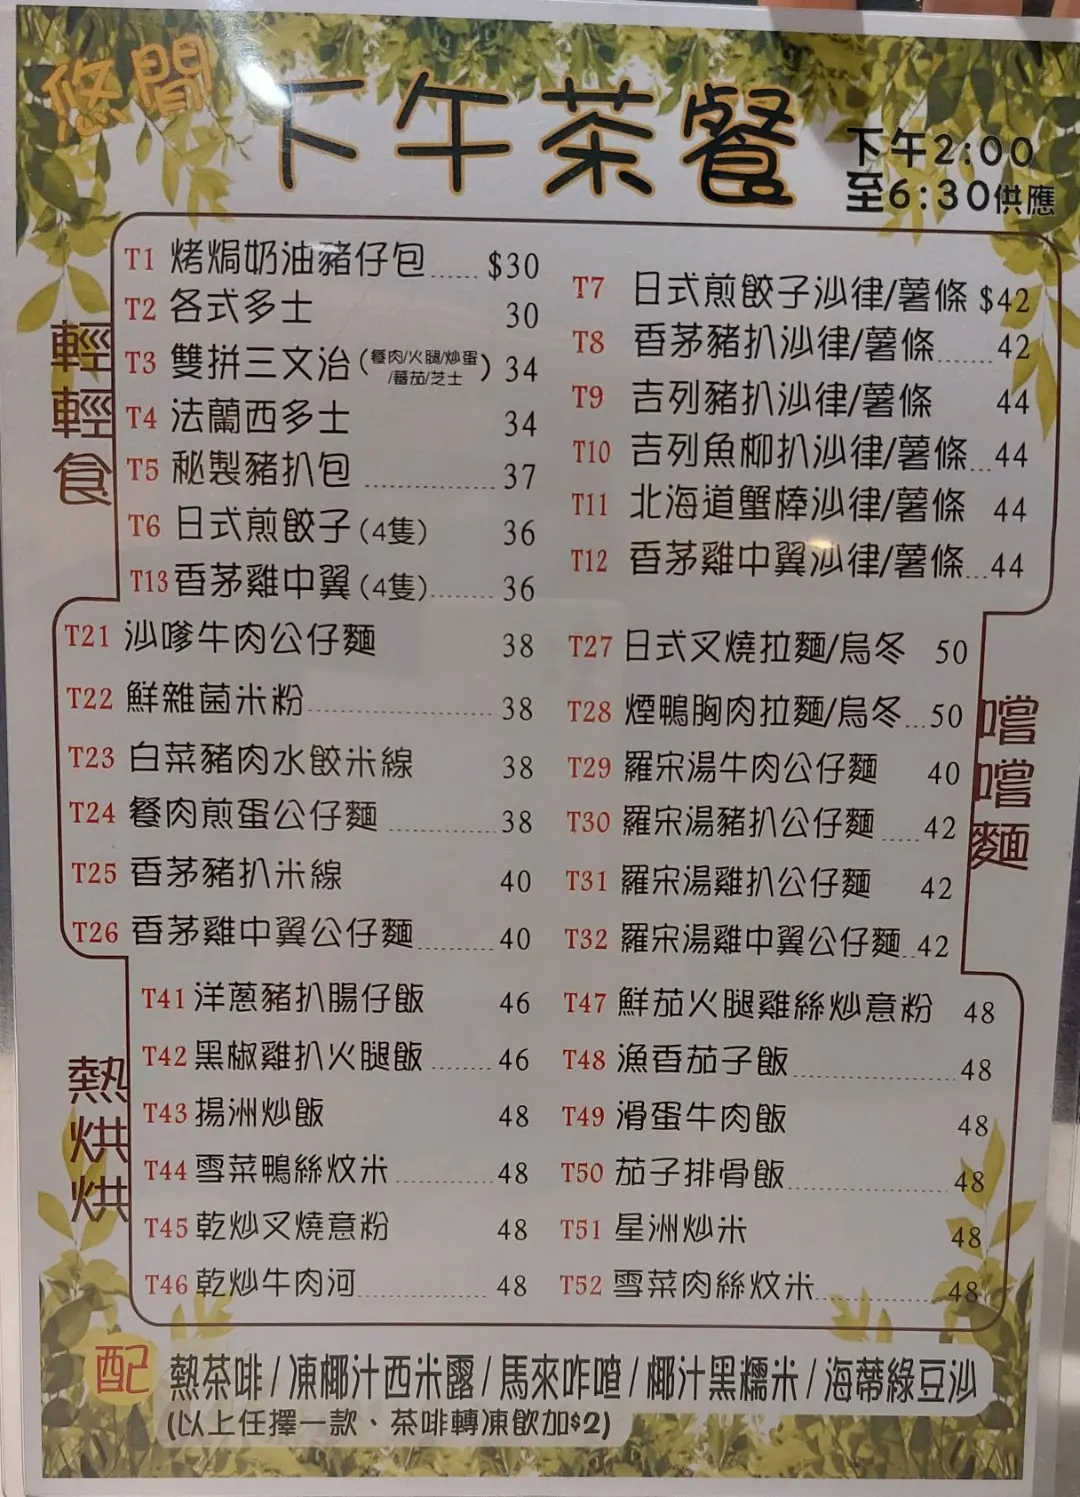 悠閒
下午茶餐
下午2:00
至6:30供應
輕輕食
T1 烤焗奶油豬仔包...... $30
T2 各式多士 30
T3 雙拼三文治(餐肉/火腿/炒蛋/蕃茄/芝士) 34
T4 法蘭西多士 34
T5 秘製豬扒包 ............... 37
T6 日式煎餃子(4隻) 36
T13 香茅雞中翼(4隻)........ 36
T7 日式煎餃子沙律/薯條 $42
T8 香茅豬扒沙律/薯條...... 42
T9 吉列豬扒沙律/薯條 44
T10 吉列魚柳扒沙律/薯條...44
T11 北海道蟹棒沙律/薯條 44
T12 香茅雞中翼沙律/薯條...44
嚐嚐麵
T21 沙嗲牛肉公仔麵 38
T22 鮮雜菌米粉...................... 38
T23 白菜豬肉水餃米線 38
T24 餐肉煎蛋公仔麵 ............ 38
T25 香茅豬扒米線 40
T26 香茅雞中翼公仔麵......... 40
T27 日式叉燒拉麵/烏冬 50
T28 煙鴨胸肉拉麵/烏冬...50
T29 羅宋湯牛肉公仔麵 40
T30 羅宋湯豬扒公仔麵 ....42
T31 羅宋湯雞扒公仔麵 42
T32 羅宋湯雞中翼公仔麵..42
熱烘烘
T41 洋蔥豬扒腸仔飯 46
T42 黑椒雞扒火腿飯 ....... 46
T43 揚洲炒飯 48
T44 雪菜鴨絲炆米............ 48
T45 乾炒叉燒意粉 48
T46 乾炒牛肉河............... 48
T47 鮮茄火腿雞絲炒意粉 48
T48 漁香茄子飯................... 48
T49 滑蛋牛肉飯 48
T50 茄子排骨飯................... 48
T51 星洲炒米 48
T52 雪菜肉絲炆米................48
配 熱茶啡/凍椰汁西米露/馬來咋喳/椰汁黑糯米/海蒂綠豆沙
(以上任擇一款、茶啡轉凍飲加$2)